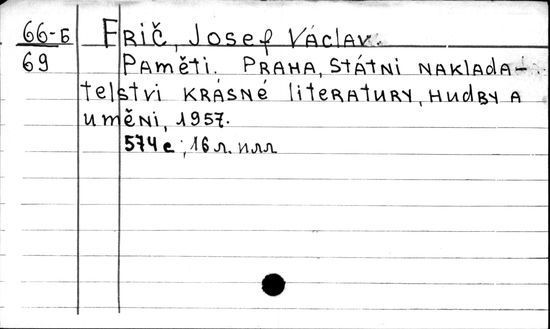 66-Б Frič, Josef Václav.
69 Paměti. Praha, Státni naklada-
telstvi krásné literatury, hudby a
uměni, 1957.
574 c; 16 л. илл